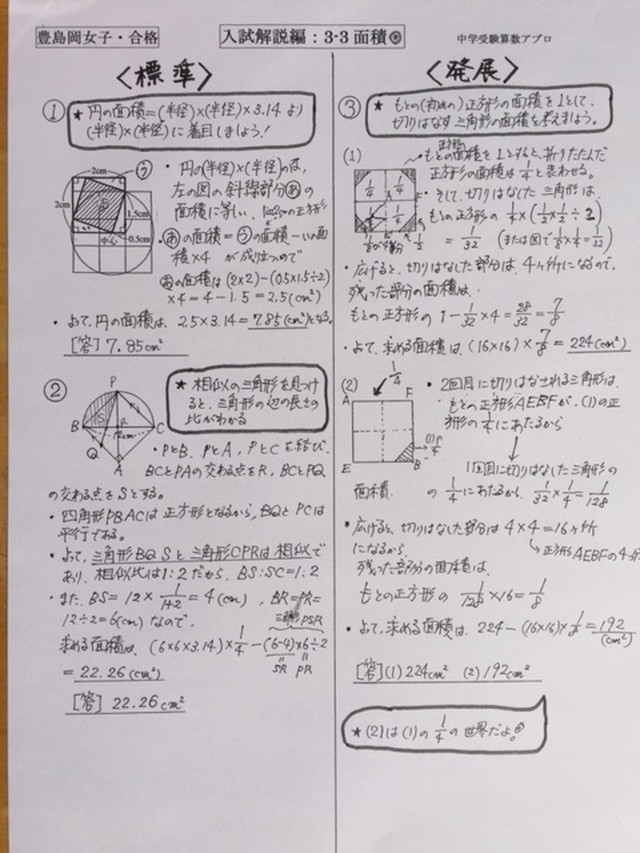 豊島岡女子・合格
入試解説編：3-3 面積
中学受験算数アプロ
〈標準〉
①
★ 円の面積=(半径)×(半径)×3.14 より
(半径)×(半径)に着目しましょう！
2cm
2cm
1.5cm
0.5cm
中心
・円の(半径)×(半径)の値は、
左の図の斜線部分あの
面積に等しい。
・あの面積=うの面積-いの面
積×4 が成り立つので
あの面積は (2×2)-(0.5×1.5÷2)
×4=4-1.5=2.5(cm²)
・よって、円の面積は、2.5×3.14=7.85(cm²)となる。
[答] 7.85cm²
②
★ 相似の三角形を見つけ
ると、三角形の辺の長さの
比がわかる
P
B
C
S
R
Q
A
12cm
・PとB、PとA、PとCを結び、
BCとPAの交わる点をR、BCとPQ
の交わる点をSとする。
・四角形PBACは正方形となるから、BQとPCは
平行である。
・よって、三角形BQSと三角形CPRは相似で
あり、相似比は1:2だから、BS:SC=1:2
・また、BS=12×1/(1+2)=4(cm)、BR=PR=
12÷2=6(cm)なので、
三角形PSR
求める面積は、(6×6×3.14)×1/4-(6-4)×6÷2
=22.26(cm²)
SR PR
[答] 22.26cm²
〈発展〉
③
★ もとの(初めの)正方形の面積を1として、
切りはなす三角形の面積を考えましょう。
(1)
・もとの正方形の面積を1とすると、折りたたんだ
正方形の面積は1/4と表わせる。
・そして、切りはなした三角形は、
もとの正方形の1/4×(1/2×1/2÷2)
=1/32 (または図で1/8×1/4=1/32)
・広げると、切りはなした部分は、4ヶ所になるので、
残った部分の面積は、
もとの正方形の 1-1/32×4=28/32=7/8
・よって、求める面積は、(16×16)×7/8=224(cm²)
(2)
1/4
A
F
E
B
・2回目に切りはなされる三角形は、
もとの正方形AEBFが、(1)の正
方形の1/4にあたるから
1回目に切りはなした三角形の
面積の1/4にあたるから、1/32×1/4=1/128
・広げると、切りはなした部分は4×4=16ヶ所
になるから、
正方形AEBFの4つ分
残った部分の面積は、
もとの正方形の 1/128×16=1/8
・よって、求める面積は、224-(16×16)×1/8=192(cm²)
[答](1)224cm² (2)192cm²
★(2)は(1)の1/4の世界だよ。